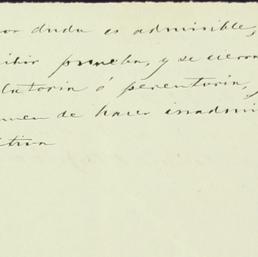 or duda es admisible,
ibir prueba, y se cierra
latoria ó perentoria, y
de hacer inadmi
tiva